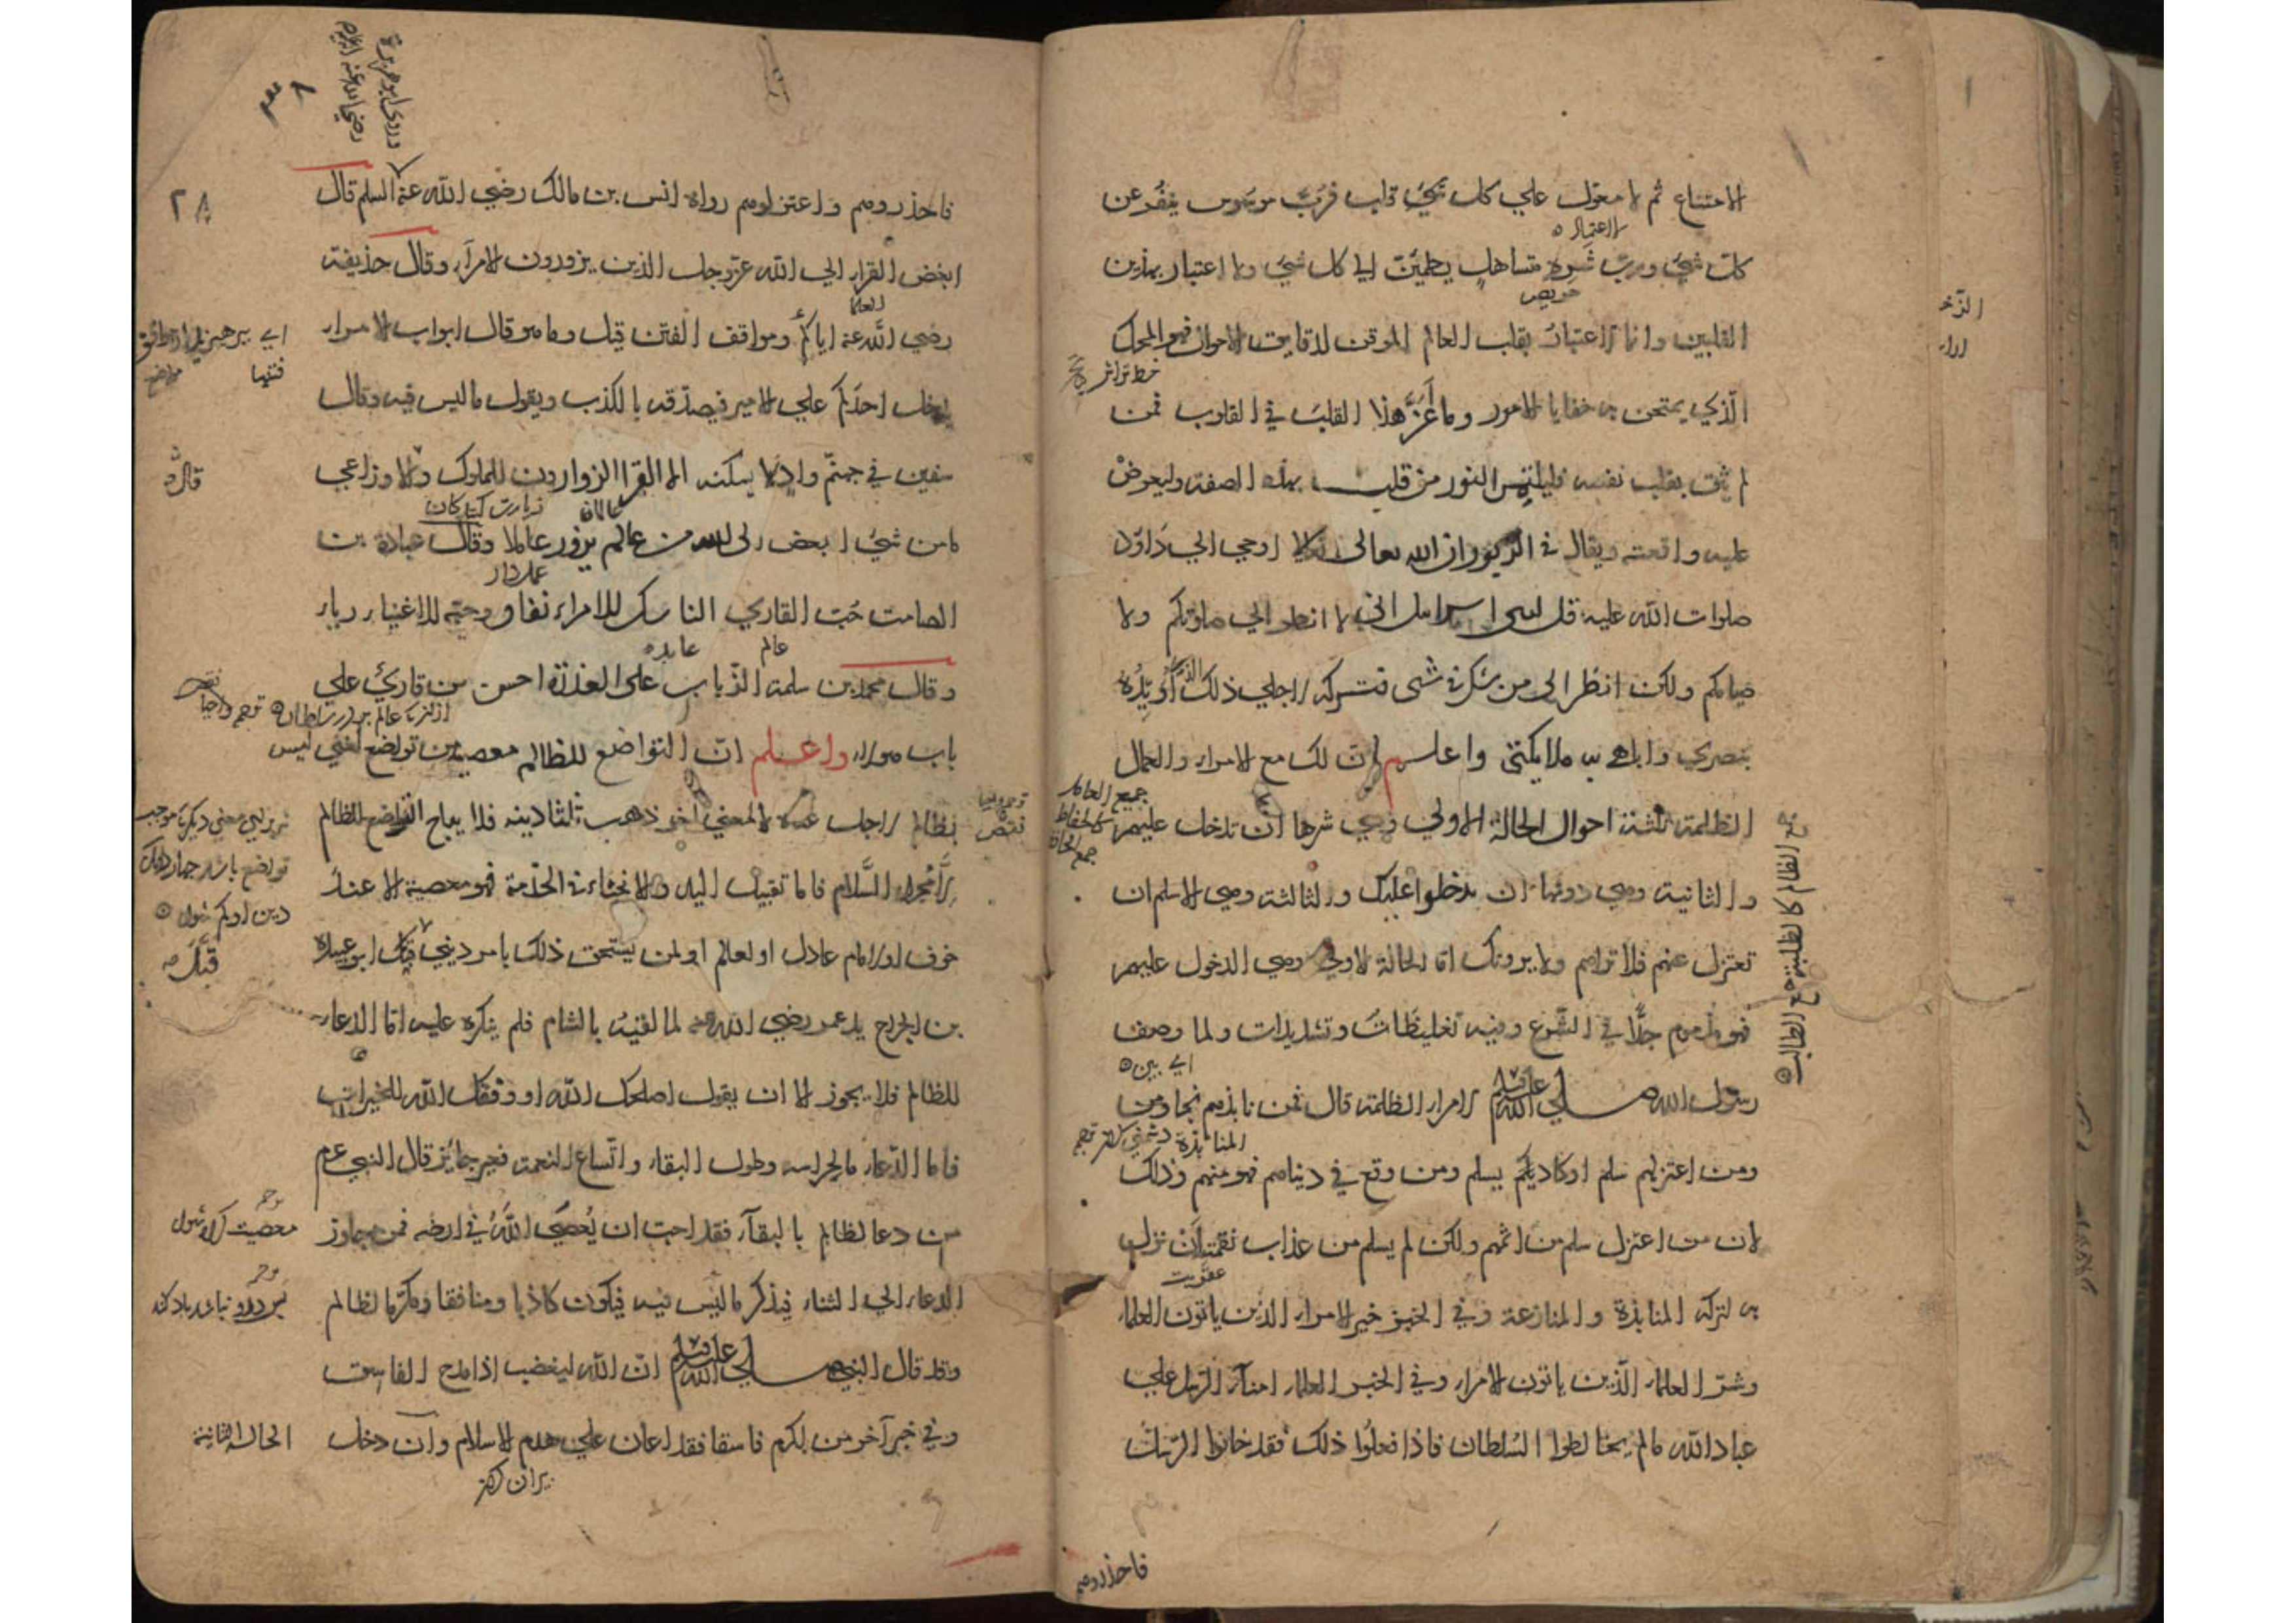 الامتناع ثم لا معول علي كل قلب فرب موسوس ينفر عن
الاعتماد
كل شيء ورب شره متساهل يطمئن الي كل شيء ولا اعتبار بهذين
حريص
القلبين وانما الاعتبار بقلب العالم الموفق لدقايق الاحوال فهو المحك
الذي يمتحن به خفايا الامور وما أعز هذا القلب في القلوب فمن
لم يثق بقلب نفسه فليلتمس النور من قلب بهذه الصفة وليعرض
عليه واقعته ويقال في الزبور ان الله تعالى اوحي الي داود
صلوات الله عليه قل لبني اسرائيل اني لا انظر الي صلوتكم ولا
صيامكم ولكن انظر الى من شك في شى فتركه لاجلي ذلك الذي أؤيده
بنصري واباهي به ملايكتي واعلم ان لك مع الامراء والعمال
الظلمة ثلثة احوال الحالة الاولي وهي شرها ان تدخل عليهم
والثانية وهي دونها ان يدخلوا عليك والثالثة وهي الاسلم ان
تعتزل عنهم فلا تراهم ولا يرونك اما الحالة الاولي وهي الدخول عليهم
فهو مذموم جدا في الشرع وفيه تغليظات وتشديدات ولما وصف
اي بين
رسول الله صلي الله عليه وسلم الامراء الظلمة قال فمن نابذهم نجا ومن
المنابذة دشمني
ومن اعتزلهم سلم او كاد يسلم ومن وقع في دنياهم فهو منهم وذلك
لان من اعتزل سلم من اثمهم ولكن لم يسلم من عذاب نقمة ان نزل
عقوبت
به لتركه المنابذة والمنازعة وفي الخبر خير الامراء الذين ياتون العلماء
وشر العلماء الذين ياتون الامراء وفي الخبر العلماء امناء الرسل علي
عباد الله مالم يخالطوا السلطان فاذا فعلوا ذلك فقد خانوا الرسل
فاحذروهم
الظالم كالظلمة جمع الطالب
وروي ابو هريرة
رضي الله عنه
٢٨
فاحذروهم واعتزلوهم رواه انس بن مالك رضي الله عنه السلم قال
ابغض القراء الي الله عز وجل الذين يزورون الامراء وقال حذيفة
العلماء
رضي الله عنه اياكم ومواقف الفتن قيل وما هو قال ابواب الامراء
يدخل احدكم علي الامير فيصدقه بالكذب ويقول ما ليس فيه وقال
سفين في جهنم واد لا يسكنه الا القرا الزوارون للملوك وقال الاوزاعي
عالمان زيارت كنندكان
ما من شيء ابغض الى الله من عالم يزور عاملا وقال عبادة بن
عملدار
الصامت حب القاري الناسك للامراء نفاق وحبه للاغنياء رياء
عالم عابد
وقال محمد بن سلمة الذباب على العذرة احسن من قارئ علي
باب هولاء واعلم ان التواضع للظالم معصية من تواضع لغني ليس
بظالم لاجل غناه لا لمعني آخر ذهب ثلثا دينه فلا يباح التواضع للظالم
الا مجرد السلام فاما تقبيل اليد والانحناء في الخدمة فهو معصية الا عند
خوف او لامام عادل او لعالم او لمن يستحق ذلك بامر ديني قبل ابو عبيدة
بن الجراح يد عمر رضي الله عنه لما لقيه بالشام فلم ينكره عليه اما الدعاء
للظالم فلا يجوز الا ان يقول اصلحك الله او وفقك الله للخيرات
فاما الدعاء بالحراسة وطول البقاء واتساع النعمة فغير جائز قال النبي عم
من دعا لظالم بالبقاء فقد احب ان يعصي الله في ارضه فمن جاوز
الدعاء الي الثناء فيذكر ما ليس فيه فيكون كاذبا ومنافقا ومكرما لظالم
وقد قال النبي صلي الله عليه وسلم ان الله ليغضب اذا مدح الفاسق
وفي خبر آخر من اكرم فاسقا فقد اعان علي هدم الاسلام وان دخل
الحالة الثانية